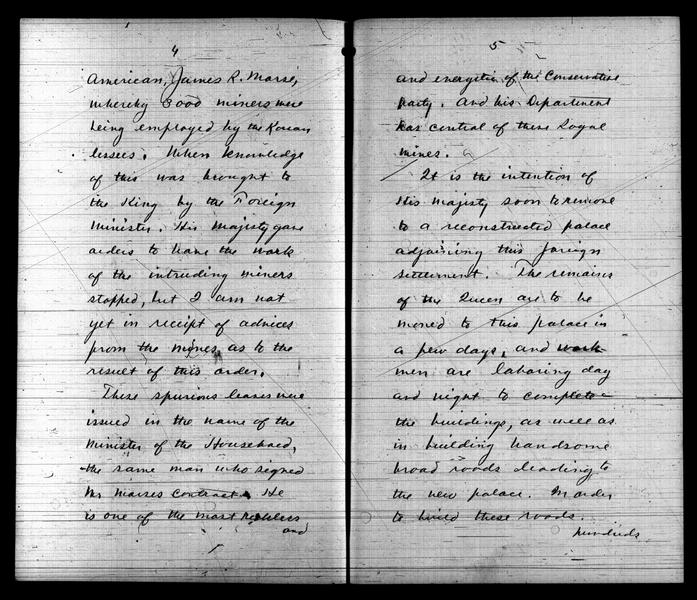 4
American, James R. Morse,
whereby 3000 miners were
being employed by the Korean
lessees. When knowledge
of this was brought to
the King by the Foreign
Minister. His Majesty gave
orders to have the work
of the intruding miners
stopped, but I am not
yet in receipt of advices
from the mines, as to the
result of this order.
These spurious leases were
issued in the name of the
Minister of the Household,
the same man who signed
Mr Morses contract. He
is one of the most
and
5
and energetic of the Conservative
party. And his Department
has control of these Royal
mines.
It is the intention of
His Majesty soon to remove
to a reconstructed palace
adjoining this foreign
settlement. The remains
of the Queen are to be
moved to this palace in
a few days, and work
men are laboring day
and night to complete
the buildings, as well as
in building handsome
broad roads leading to
the new palace. In order
to build these roads.
hundreds